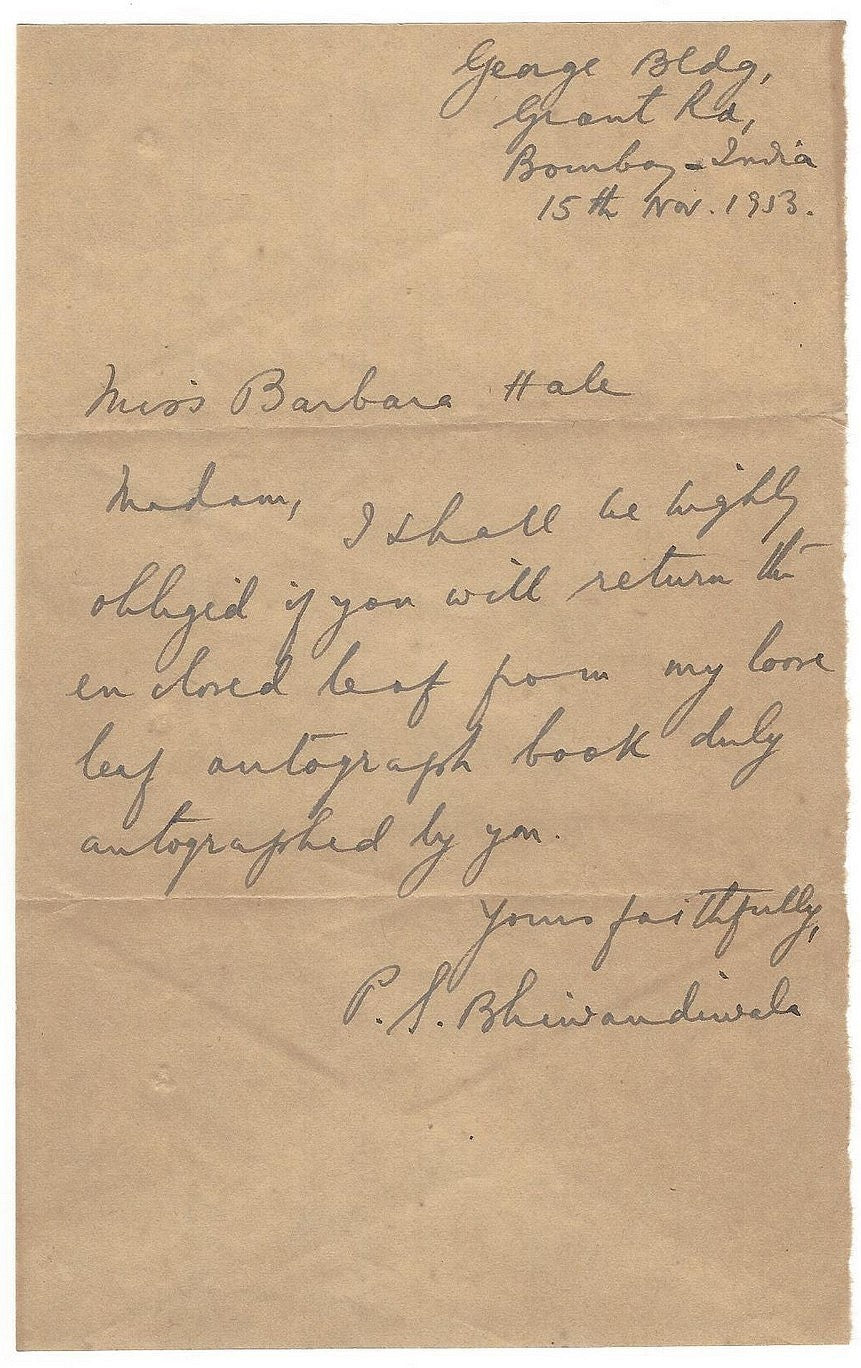 George Bldg,
Grant Rd,
Bombay - India
15th Nov. 1953.
Miss Barbara Hale
Madam, I shall be highly
obliged if you will return the
enclosed leaf from my loose
leaf autograph book duly
autographed by you.
Yours faithfully,
P. S. Bhiwandiwala